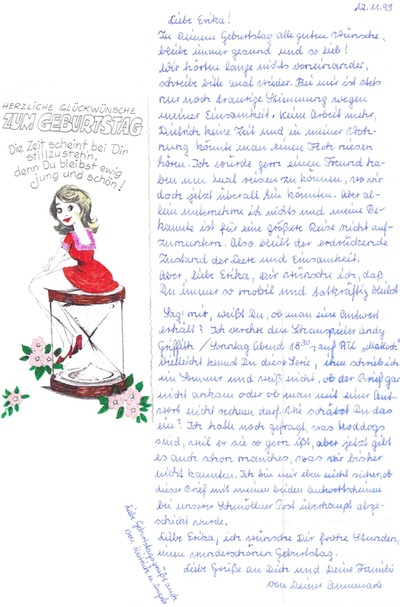 12.11.93
Liebe Erika!
Zu Deinem Geburtstag alle guten Wünsche,
bleibe immer gesund und so lieb!
Wir hörten lange nichts voneinander,
schreibe bitte mal wieder. Bei mir ist stets
nur noch traurige Stimmung wegen
meiner Einsamkeit. Keine Arbeit mehr,
Dietrich keine Zeit und in meiner Woh-
nung könnte man einen Floh niesen
hören. Ich würde gern einen Freund ha-
ben um mal reisen zu können, wo wir
doch jetzt überall hin könnten. Aber al-
lein unternehme ich nichts und meine Be-
kannte ist für eine größere Reise nicht auf-
zumuntern. Also bleibt der erdrückende
Zustand der Leere und Einsamkeit.
Aber, liebe Erika, Dir wünsche ich, daß
Du immer so mobil und tatkräftig bleibst.
Sag mir, weißt Du, ob man eine Antwort
erhält? Ich verehre den Schauspieler Andy
Griffith / Sonntag Abend 18.30, auf RTL „Matlock“
Vielleicht kennst Du diese Serie, ihm schrieb ich
im Sommer und weiß nicht, ob der Brief gar
nicht ankam oder ob man mit einer Ant-
wort nicht rechnen darf. Wie schätzt Du das
ein? Ich hatte noch gefragt, was Hotdogs
sind, weil er sie so gern ißt, aber jetzt gibt
es auch schon manches, was wir bisher
nicht kannten. Ich bin mir eben nicht sicher, ob
dieser Brief mit meinen beiden Antwortscheinen
bei unserer Schmöllner Post überhaupt abge-
schickt wurde.
Liebe Erika, ich wünsche Dir frohe Stunden,
einen wunderschönen Geburtstag.
Liebe Grüße an Dich und Deine Familie
von Deiner Annemarie
HERZLICHE GLÜCKWÜNSCHE
ZUM GEBURTSTAG
Die Zeit scheint bei Dir
stillzustehn,
denn Du bleibst ewig
jung und schön!
Liebe Geburtstagsgrüße auch
von Dietrich u.